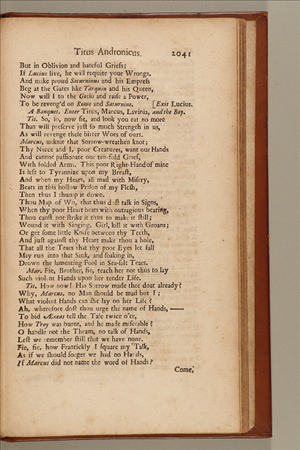 Titus Andronicus. 2041
But in Oblivion and hateful Griefs:
If Lucius live, he will requite your Wrongs,
And make proud Saturninus and his Empress
Beg at the Gates like Tarquin and his Queen,
Now will I to the Goths and raise a Power,
To be reveng'd on Rome and Saturnine. [Exit Lucius.
A Banquet. Enter Titus, Marcus, Lavinia, and the Boy.
Tit. So, so, now sit, and look you eat no more
Than will preserve just so much Strength in us,
As will revenge these bitter Woes of ours.
Marcus, unknit that Sorrow-wreathen knot;
Thy Neece and I, poor Creatures, want our Hands
And cannot passionate our ten-fold Grief,
With folded Arms. This poor Right-Hand of mine
Is left to Tyrannize upon my Breast,
And when my Heart, all mad with Misery,
Beats in this hollow Prison of my Flesh,
Then thus I thump it down.
Thou Map of Wo, that thus dost talk in Signs,
When thy poor Heart beats with outragious beating,
Thou canst not strike it thus to make it still;
Wound it with Singing, Girl, kill it with Groans;
Or get some little Knife between thy Teeth,
And just against thy Heart make thou a hole,
That all the Tears that thy poor Eyes let fall
May run into that Sink, and soaking in,
Drown the lamenting Fool in Sea-salt Tears.
Mar. Fie, Brother, fie, teach her not thus to lay
Such violent Hands upon her tender Life.
Tit. How now! Has Sorrow made thee doat already?
Why, Marcus, no Man should be mad but I;
What violent Hands can she lay on her Life?
Ah, wherefore dost thou urge the name of Hands, —
To bid Æneas tell the Tale twice o'er,
How Troy was burnt, and he made miserable?
O handle not the Theam, no talk of Hands,
Lest we remember still that we have none.
Fie, fie, how Frantickly I square my Talk,
As if we should forget we had no Hands,
If Marcus did not name the word of Hands?
Come,